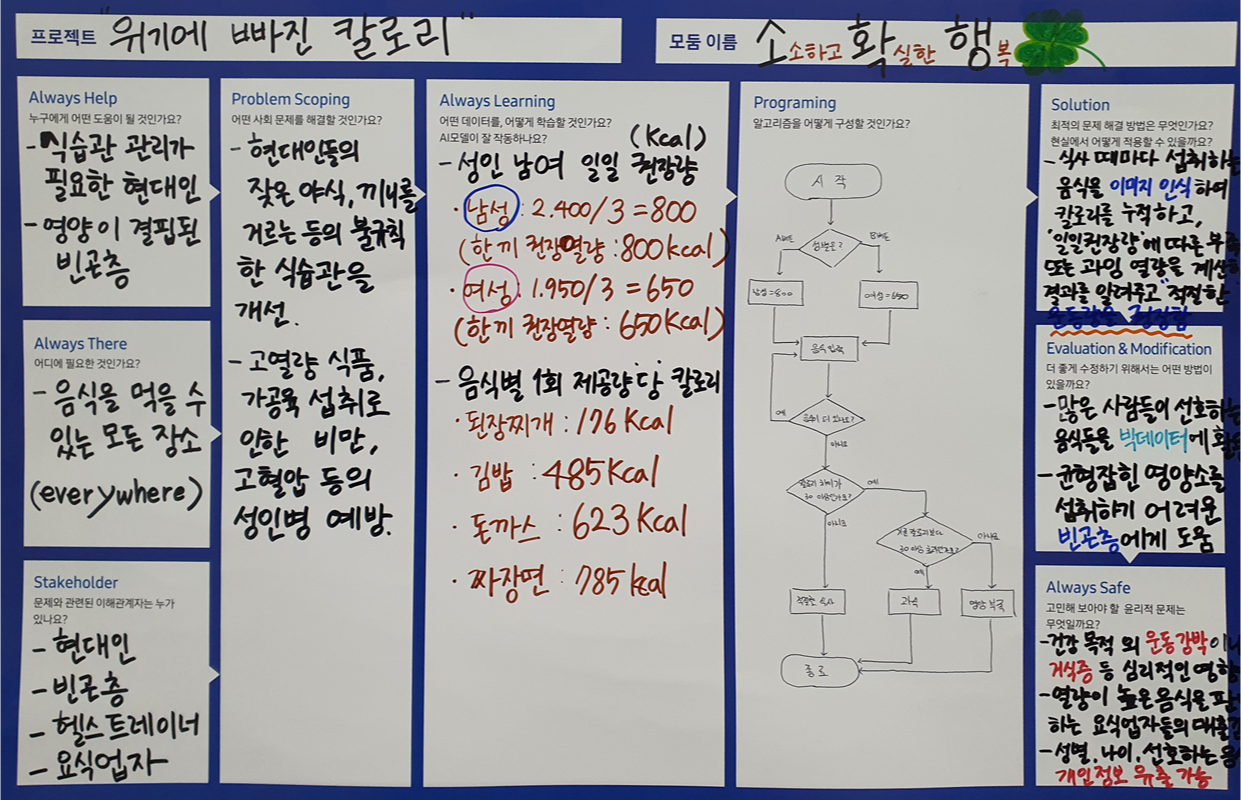 프로젝트 "위기에 빠진 칼로리"
모둠 이름 소소하고 확실한 행복
Always Help
누구에게 어떤 도움이 될 것인가요?
- 식습관 관리가
필요한 현대인
- 영양이 결핍된
빈곤층
Always There
어디에 필요한 것인가요?
- 음식을 먹을 수
있는 모든 장소
(everywhere)
Stakeholder
문제와 관련된 이해관계자는 누가
있나요?
- 현대인
- 빈곤층
- 헬스트레이너
- 요식업자
Problem Scoping
어떤 사회 문제를 해결할 것인가요?
- 현대인들의
잦은 야식, 끼니를
거르는 등의 불규칙
한 식습관을
개선.
- 고열량 식품,
가공육 섭취로
인한 비만,
고혈압 등의
성인병 예방.
Always Learning
어떤 데이터를, 어떻게 학습할 것인가요?
AI모델이 잘 작동하나요?
(Kcal)
- 성인 남여 일일 권장량
· 남성 : 2.400/3=800
(한끼 권장열량 : 800kcal)
· 여성 : 1.950/3=650
(한끼 권장열량 : 650Kcal)
- 음식별 1회 제공량'당' 칼로리
· 된장찌개 : 176Kcal
· 김밥 : 485Kcal
· 돈까스 : 623Kcal
· 짜장면 : 785kcal
Programing
알고리즘을 어떻게 구성할 것인가요?
시작
A버튼
성별은?
B버튼
남성=800
여성=650
음식입력
예
음식 더 있나요?
아니오
칼로리 차이가
30 이상인가요?
예
아니오
30이상
아니오
예
적절한 식사
과식
영양 부족
종료
Solution
최적의 문제 해결 방법은 무엇인가요?
현실에서 어떻게 적용할 수 있을까요?
- 식사 때마다 섭취하는
음식을 이미지 인식하여
칼로리를 누적하고,
'일일권장량'에 따른
또는 과잉 열량을
결과를 알려주고 "적절한
운동량을 권장함
Evaluation & Modification
더 좋게 수정하기 위해서는 어떤 방법이
있을까요?
- 많은 사람들이 선호하는
음식들을 빅데이터에
- 균형잡힌 영양소를
섭취하기 어려운
빈곤층에게 도움
Always Safe
고민해 보아야 할 윤리적 문제는
무엇일까요?
- 건강 목적 외 운동강박이나
거식증 등 심리적인
- 열량이 높은 음식을
하는 요식업자들의
- 성별, 나이, 선호하는
개인정보 유출 가능